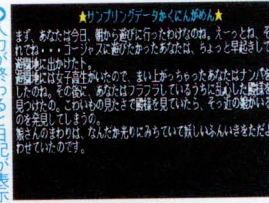 ★サンプリングデータかくにんがめん★
まず、あなたは今日、朝から遊びに行ったわけなのね。えーっとね、そ
れでね・・・ゴージャスに遊びたかったあなたは、ちょっと早起きして
遊園地に出かけたト。
遊園地には女子高生がいたので、まい上がっちゃったあなたはナンパを
したのね。その後に、あなたはフラフラしているうちに乱心した殿様を
見つけたの。こわいもの見たさで殿様を見ていたら、そっ近の娘がいる
のを発見してしまうの。
娘さんのまわりは、なんだか光りにみちていて妖しいふんいきをただよ
わせていたのです。
入力が終わると日記が表示